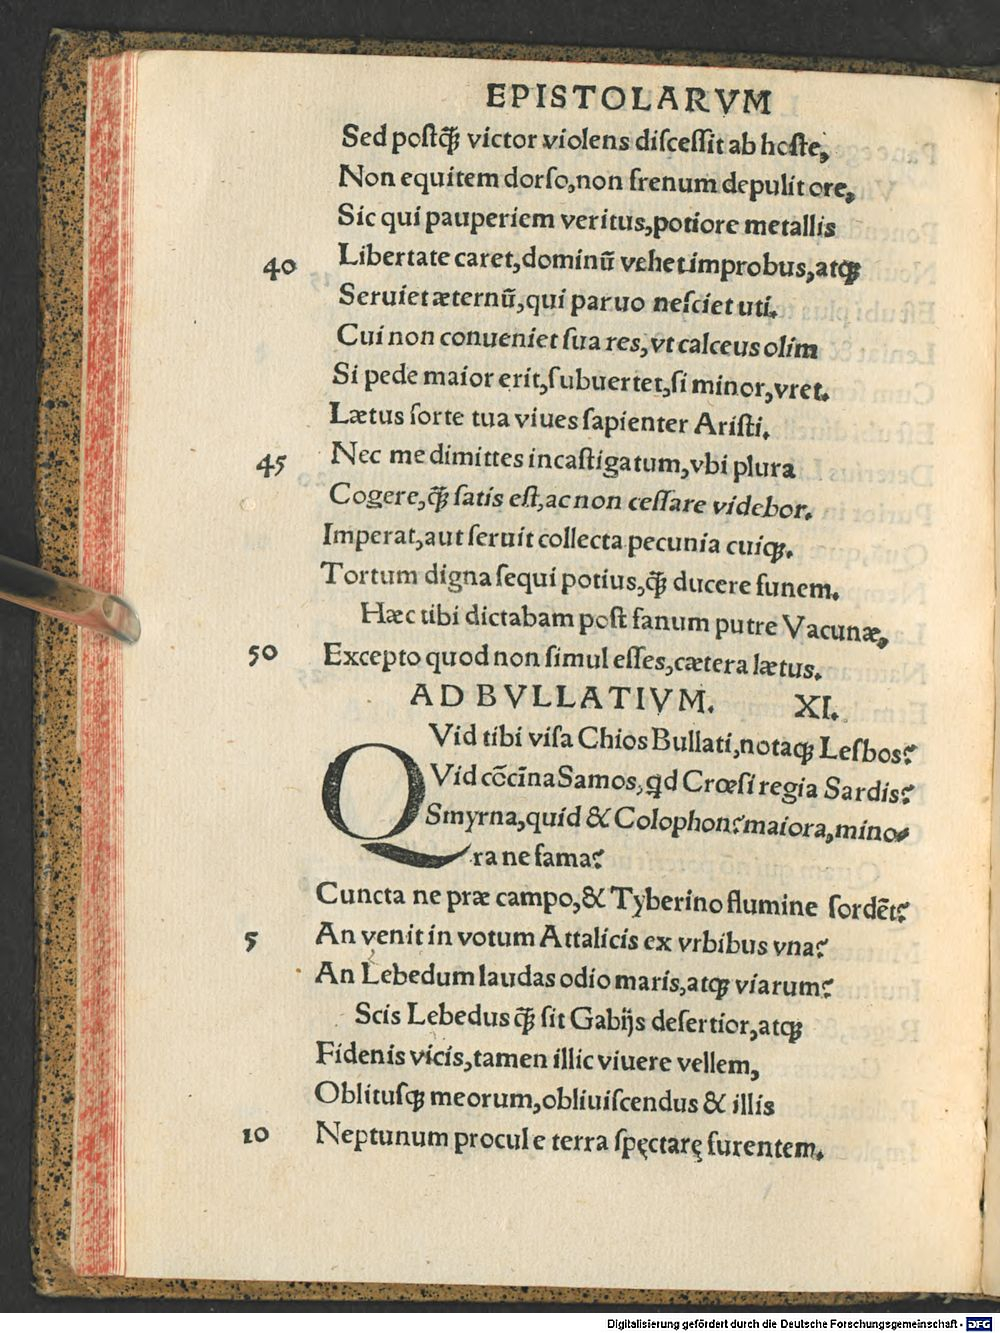 EPISTOLARVM
Sed postq̃ victor violens discessit ab hoste,
Non equitem dorso, non frenum depulit ore,
Sic qui pauperiem veritus, potiore metallis
40 Libertate caret, dominũ vehet improbus, atqꝫ
Seruiet æternũ, qui paruo nesciet uti.
Cui non conueniet sua res, vt calceus olim
Si pede maior erit, subuertet, si minor, vret.
Lætus sorte tua viues sapienter Aristi,
45 Nec me dimittes incastigatum, vbi plura
Cogere, q̃ satis est, ac non cessare videbor.
Imperat, aut seruit collecta pecunia cuiqꝫ.
Tortum digna sequi potius, q̃ ducere funem.
Hæc tibi dictabam post fanum putre Vacunæ,
50 Excepto quod non simul esses, cætera lætus.
AD BVLLATIVM. XI.
QVid tibi visa Chios Bullati, notaqꝫ Lesbos?
QVid cõcĩna Samos, qd Crœsi regia Sardis?
Smyrna, quid & Colophon? maiora, mino-
ra ne fama?
Cuncta ne præ campo, & Tyberino flumine sordẽt?
5 An venit in votum Attalicis ex vrbibus vna?
An Lebedum laudas odio maris, atqꝫ viarum?
Scis Lebedus q̃ sit Gabijs desertior, atqꝫ
Fidenis vicis, tamen illic viuere vellem,
Oblitusqꝫ meorum, obliuiscendus & illis
10 Neptunum procul e terra spęctarę furentem.
Digitalisierung gefördert durch die Deutsche Forschungsgemeinschaft - DFG